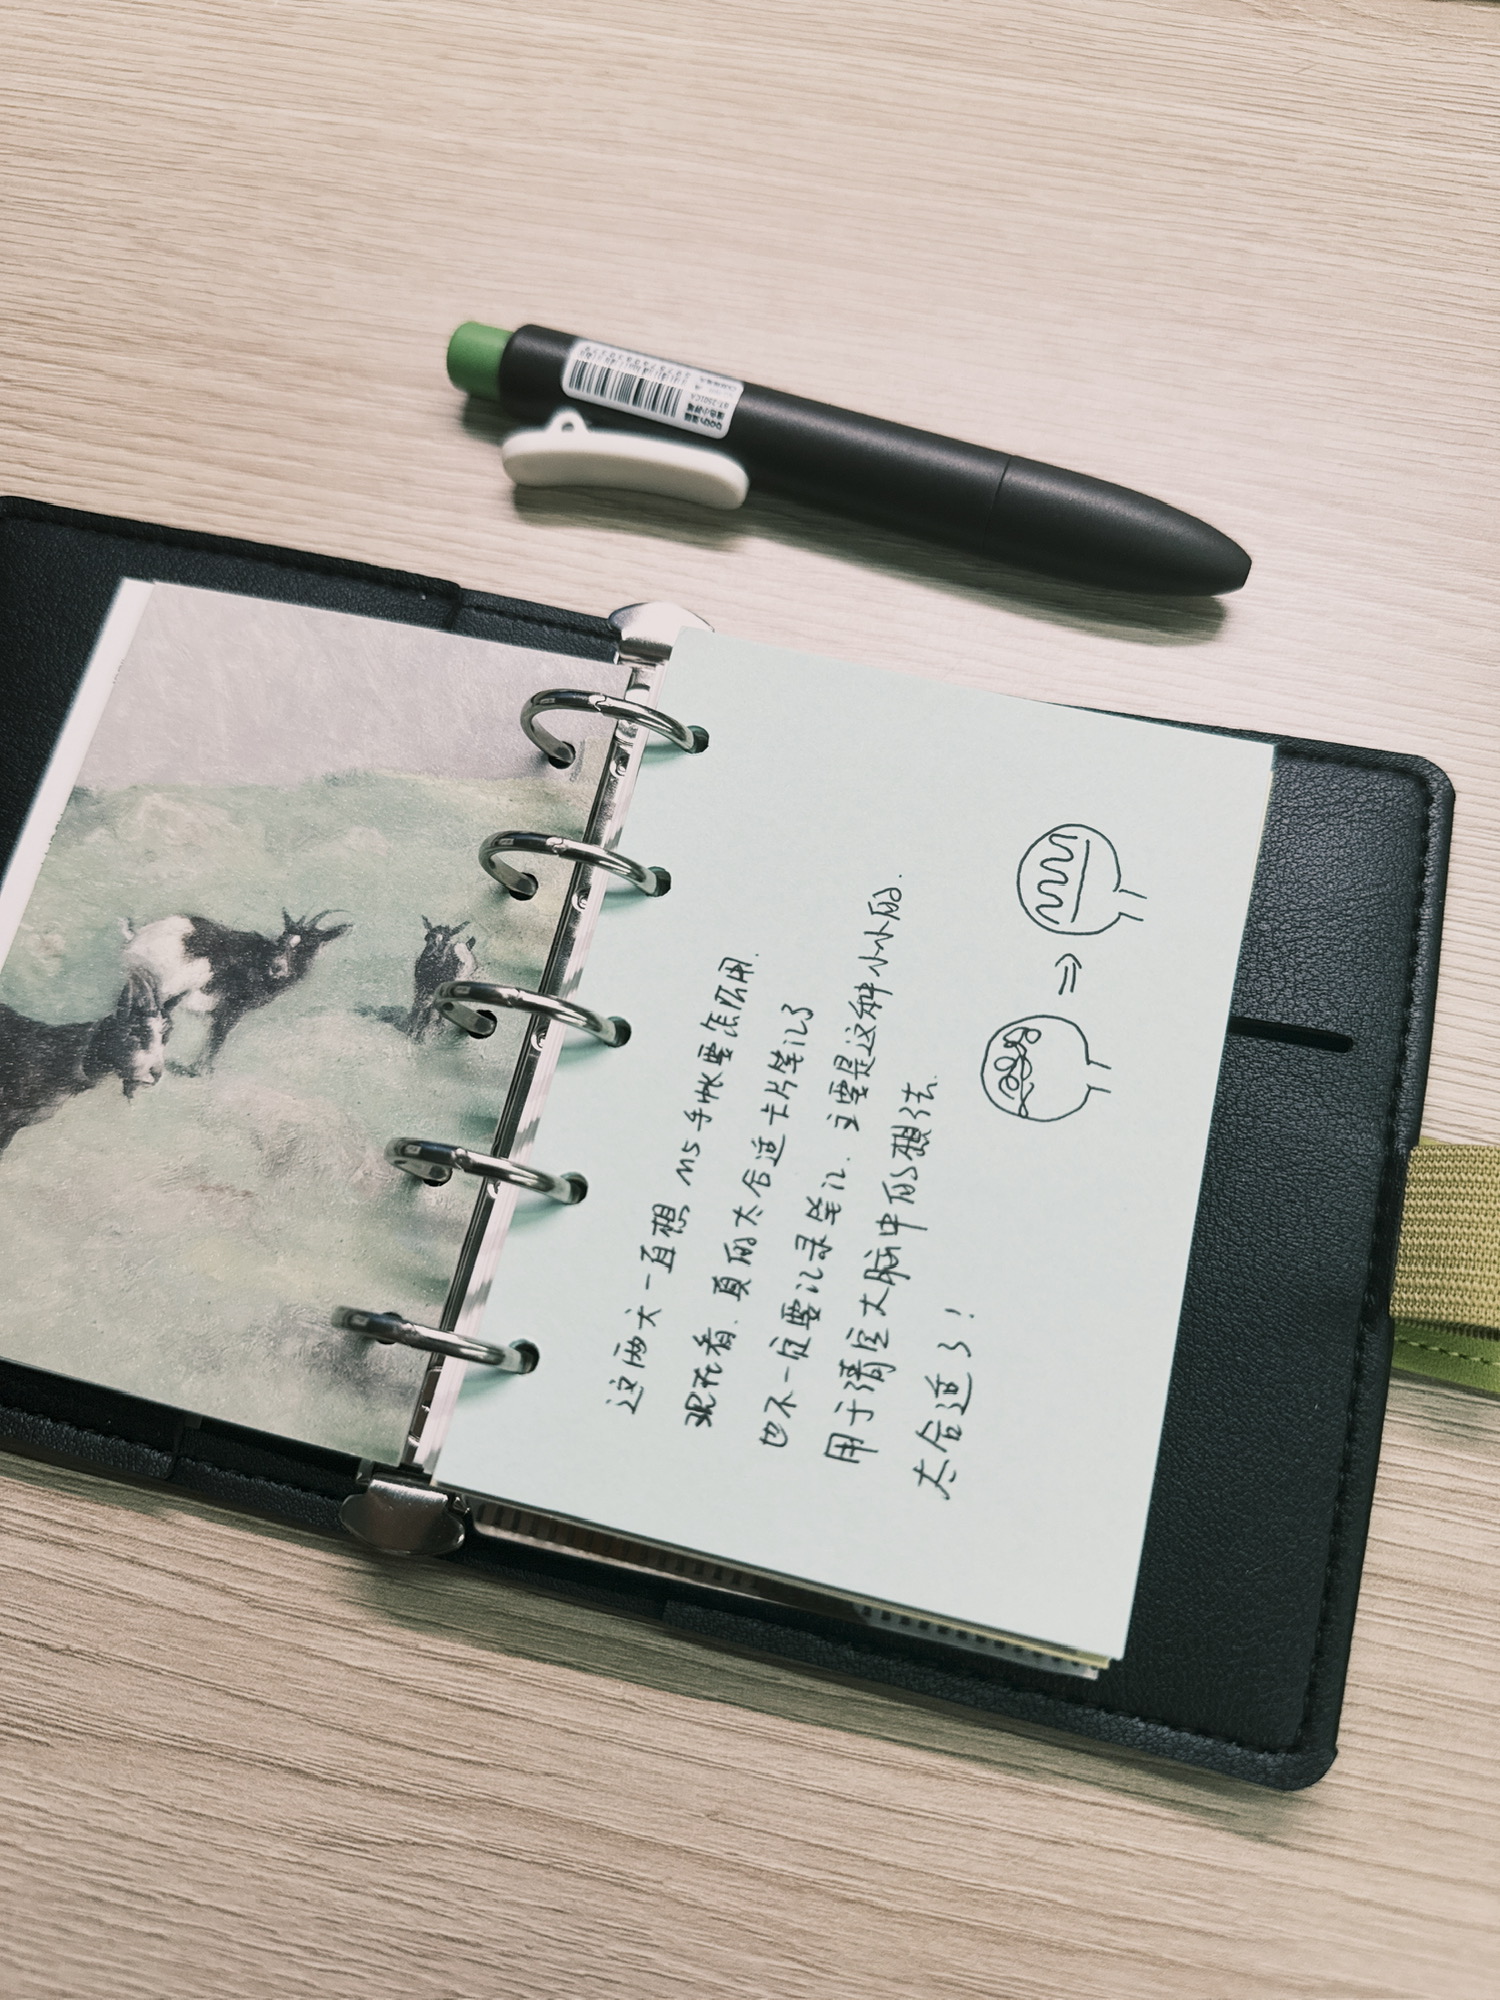 这两天一直想 M5 手帐要怎么用.
现在看. 真的太合适卡片笔记了
也不一定要记录笔记. 主要是这种小小的.
用于清空大脑中的想法.
太合适了！